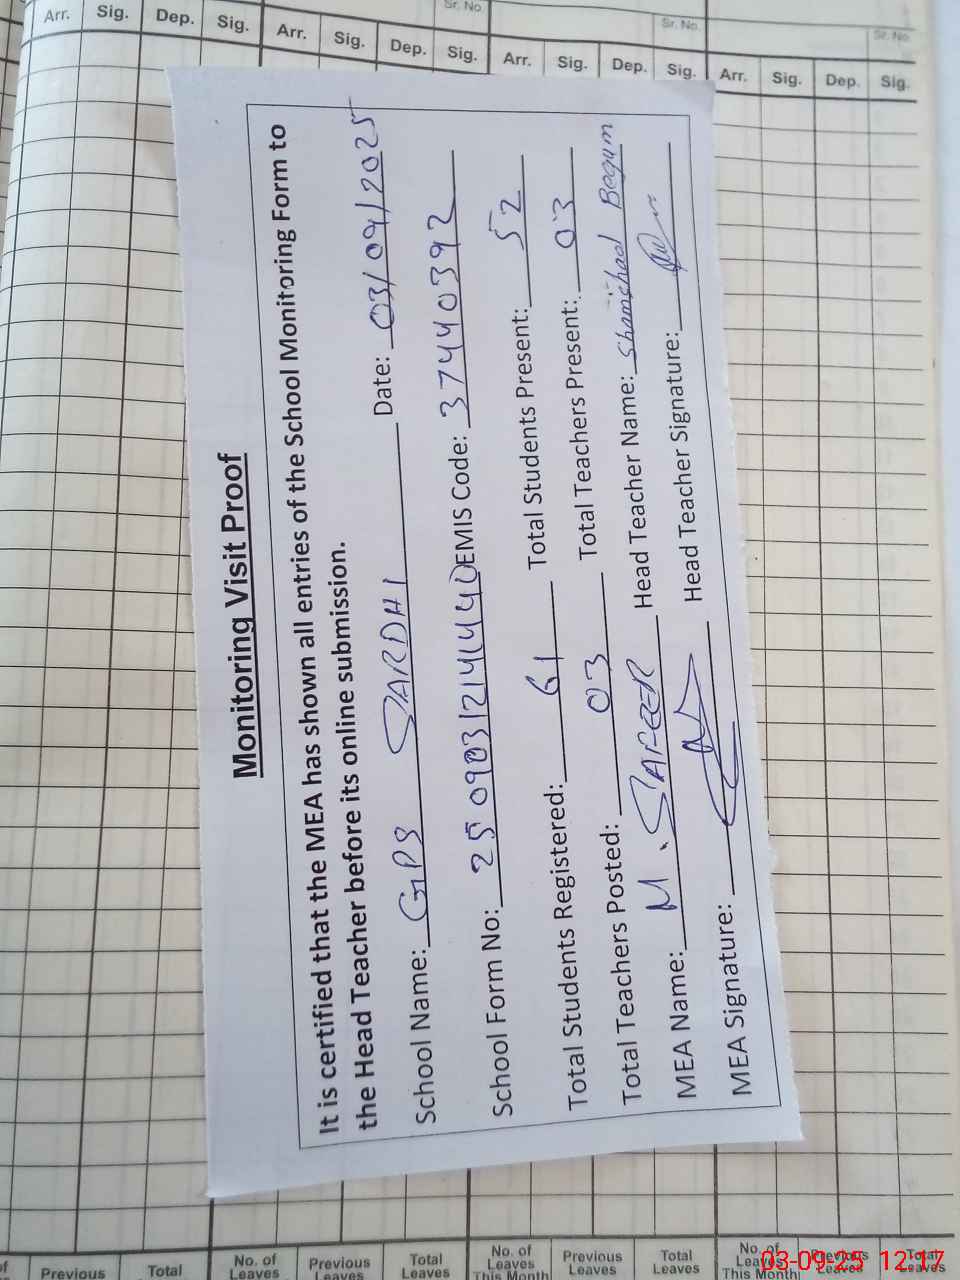 Sr. No.
Sr. No.
Sr. No.
Arr. Sig. Dep. Sig. Arr. Sig. Dep. Sig. Arr. Sig. Dep. Sig. Arr. Sig. Dep. Sig.
Monitoring Visit Proof
It is certified that the MEA has shown all entries of the School Monitoring Form to
the Head Teacher before its online submission.
School Name: GPS SARDHI Date: 03/09/2025
School Form No: EMIS Code: 37440392
Total Students Registered: 61 Total Students Present: 52
Total Teachers Posted: 03 Total Teachers Present: 03
MEA Name: M. SAFEER Head Teacher Name: Begum
MEA Signature: Head Teacher Signature:
of Previous Total No. of Leaves Previous Leaves Total Leaves No. of Leaves This Month Previous Leaves Total Leaves No. of Leaves This Month Previous Leaves Total Leaves
03-09-25 12:17